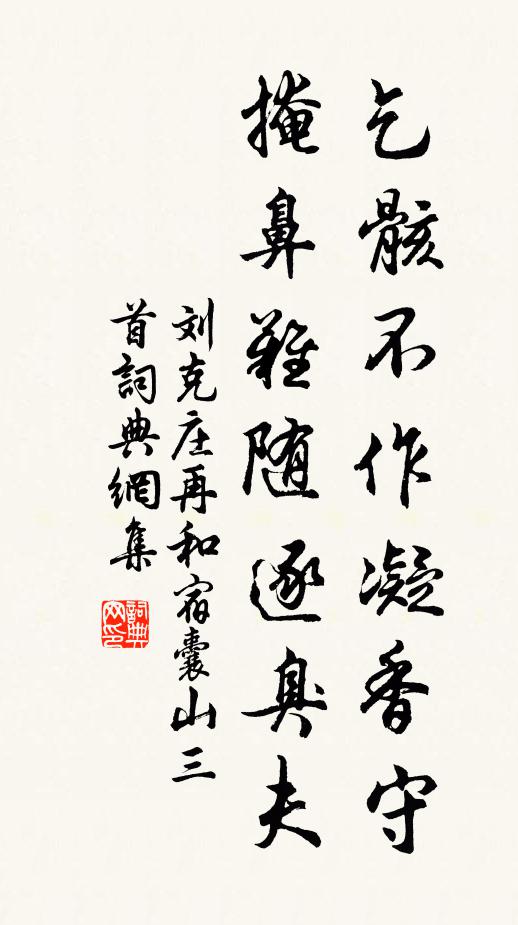 乞骸不作凝香守
掩鼻难随逐臭夫
刘克庄再和宿囊山三
首詞典網集
詞典
网印